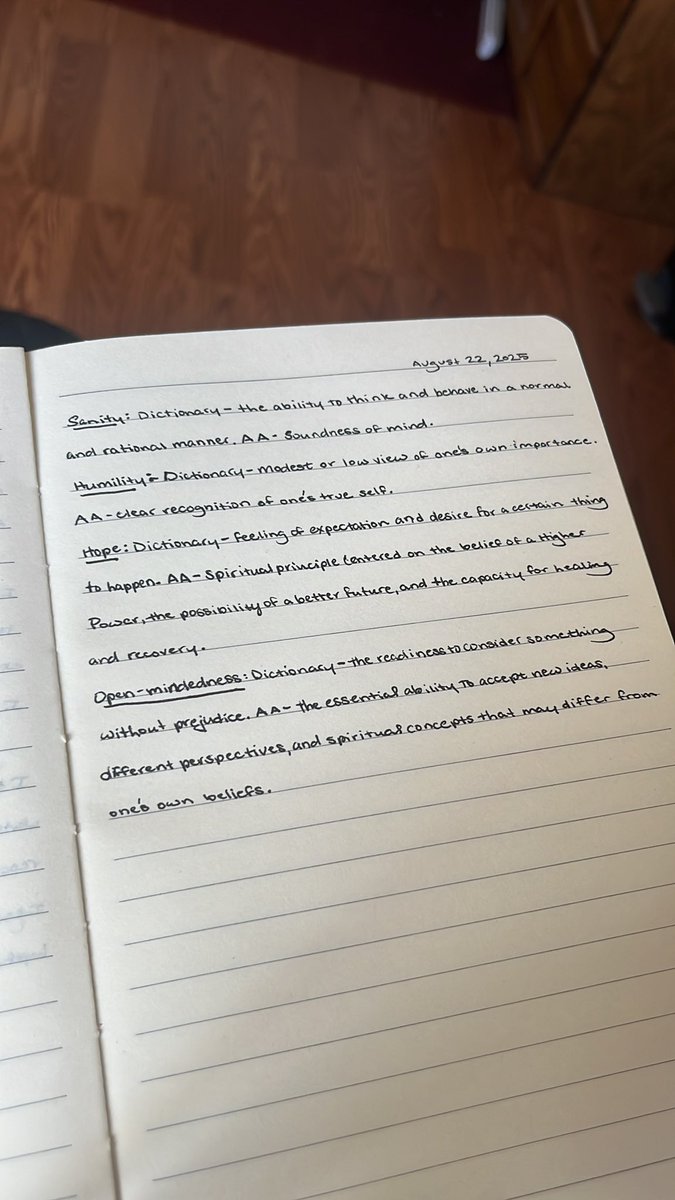 August 22, 2025
Sanity: Dictionary - the ability to think and behave in a normal
and rational manner. AA - Soundness of mind.
Humility: Dictionary - modest or low view of one's own importance.
AA - clear recognition of one's true self.
Hope: Dictionary - feeling of expectation and desire for a certain thing
to happen. AA - Spiritual principle centered on the belief of a Higher
Power, the possibility of a better future, and the capacity for healing
and recovery.
Open-mindedness: Dictionary - the readiness to consider something
without prejudice. AA - the essential ability to accept new ideas,
different perspectives, and spiritual concepts that may differ from
one's own beliefs.